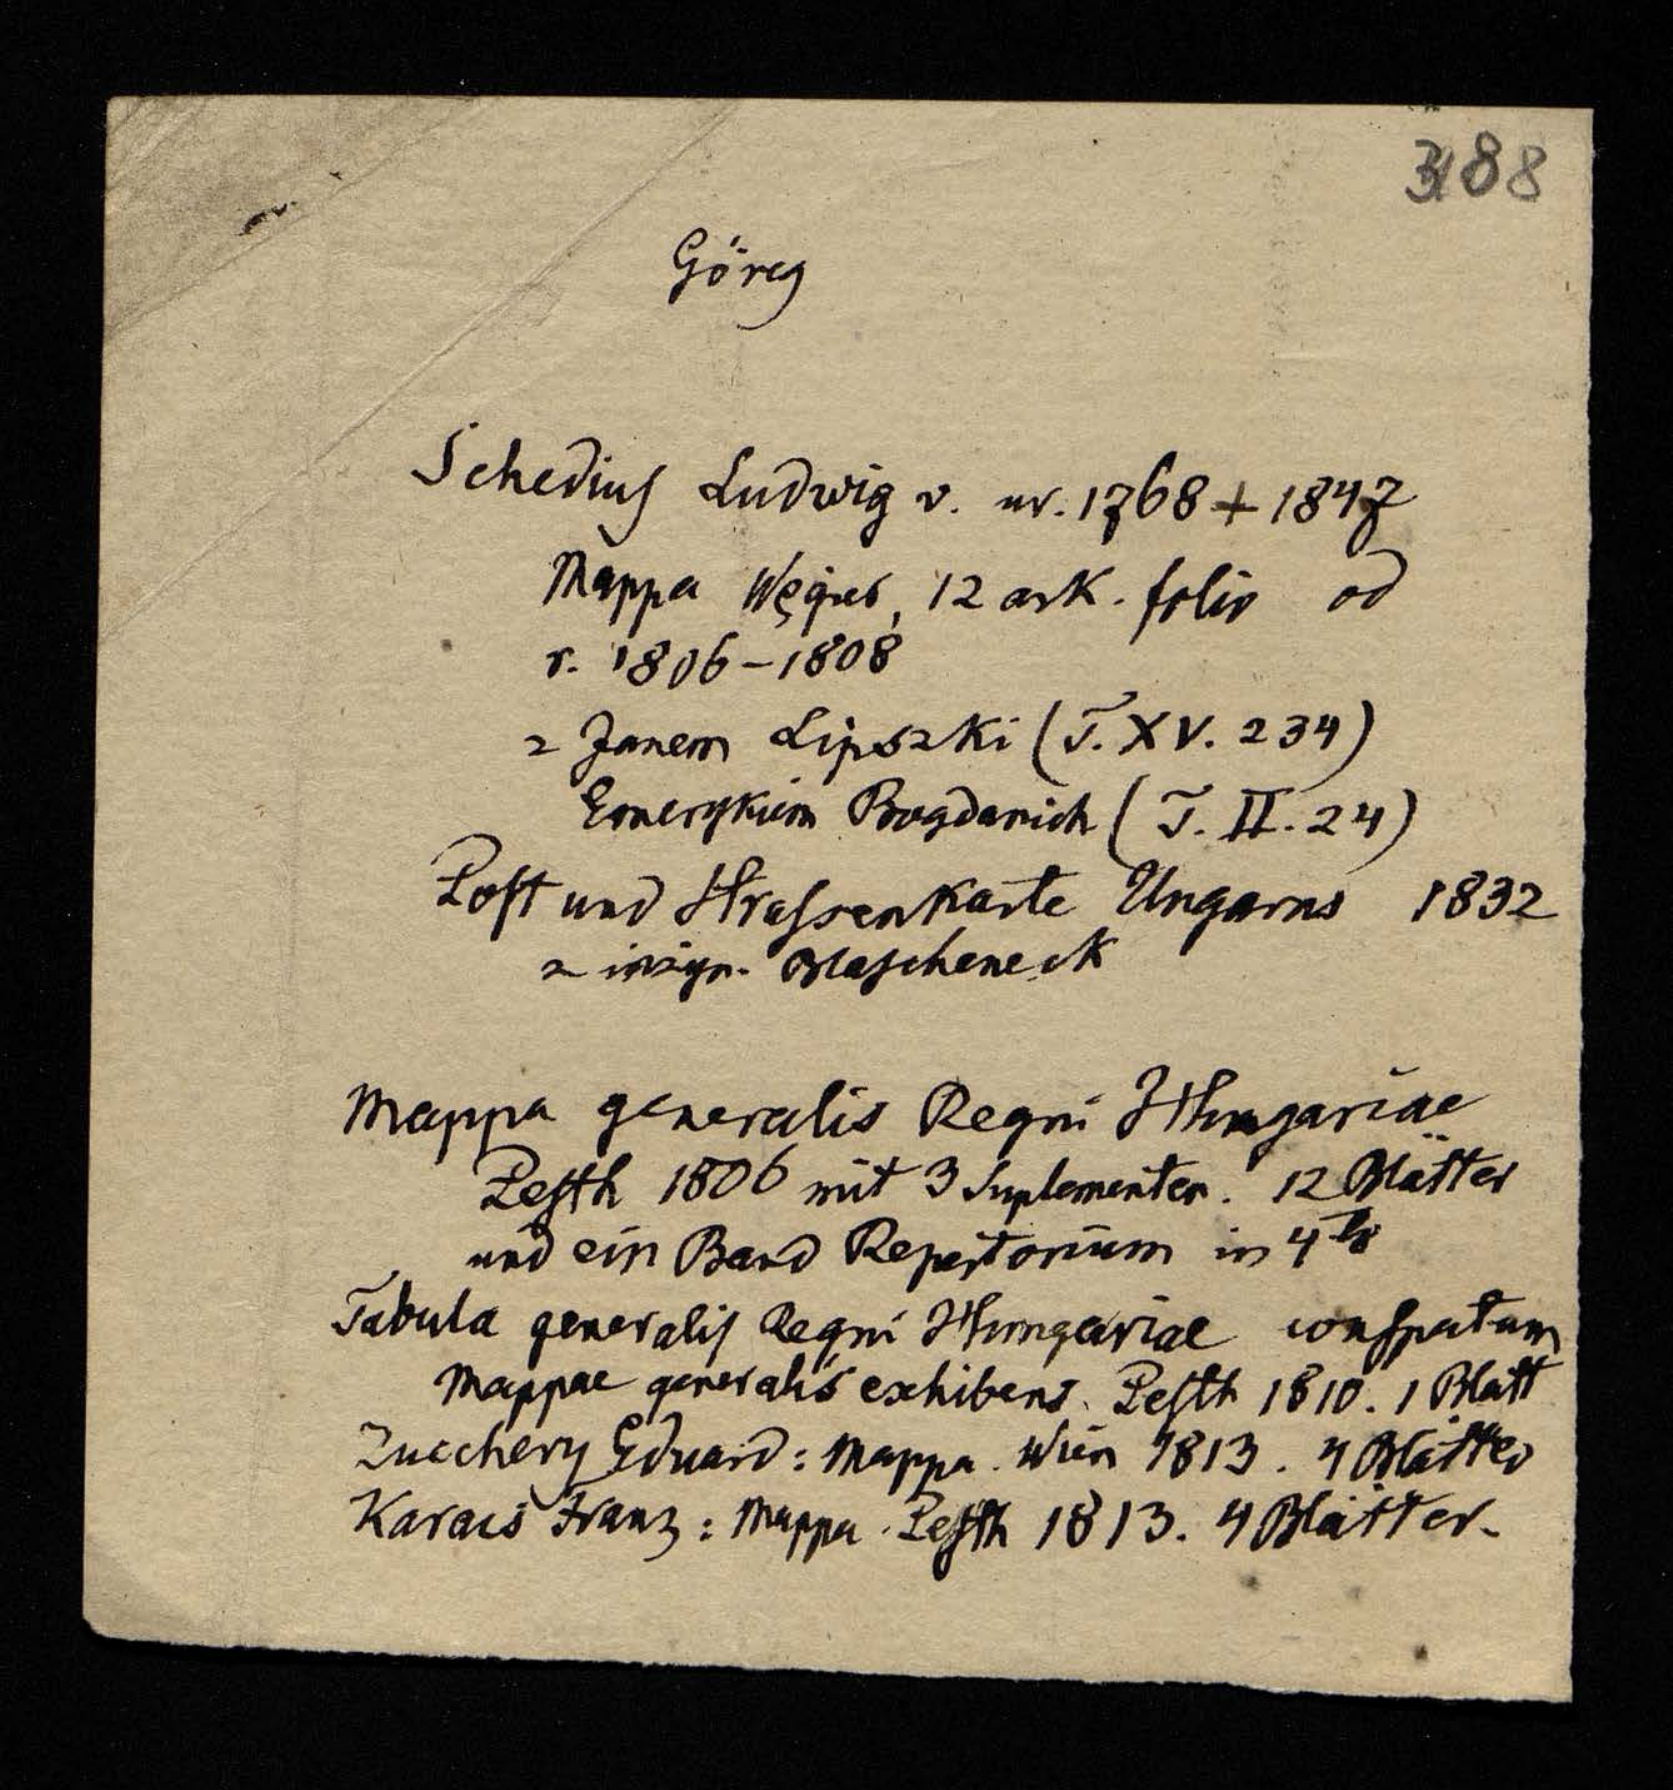 388
Görög
Schedius Ludwig v. ur. 1768 + 1847
Mappa Węgier, 12 ark. folio od
r. 1806–1808
z Janem Lipszki (T. XV. 234)
Emerykiem Bogdanich (T. II. 24)
Post und Strassenkarte Ungarns 1832
z inżyn. Blascheneck
Mappa generalis Regni Hungariae
Pesth 1806 mit 3 Suplementen. 12 Blätter
und ein Band Repertorium in 4to
Tabula generalis Regni Hungariae conspectum
Mappae generalis exhibens. Pesth 1810. 1 Blatt
Zucchery Eduard: Mappa. Wien 1813. 4 Blätter
Karacs Franz: Mappa. Pesth 1813. 4 Blätter.